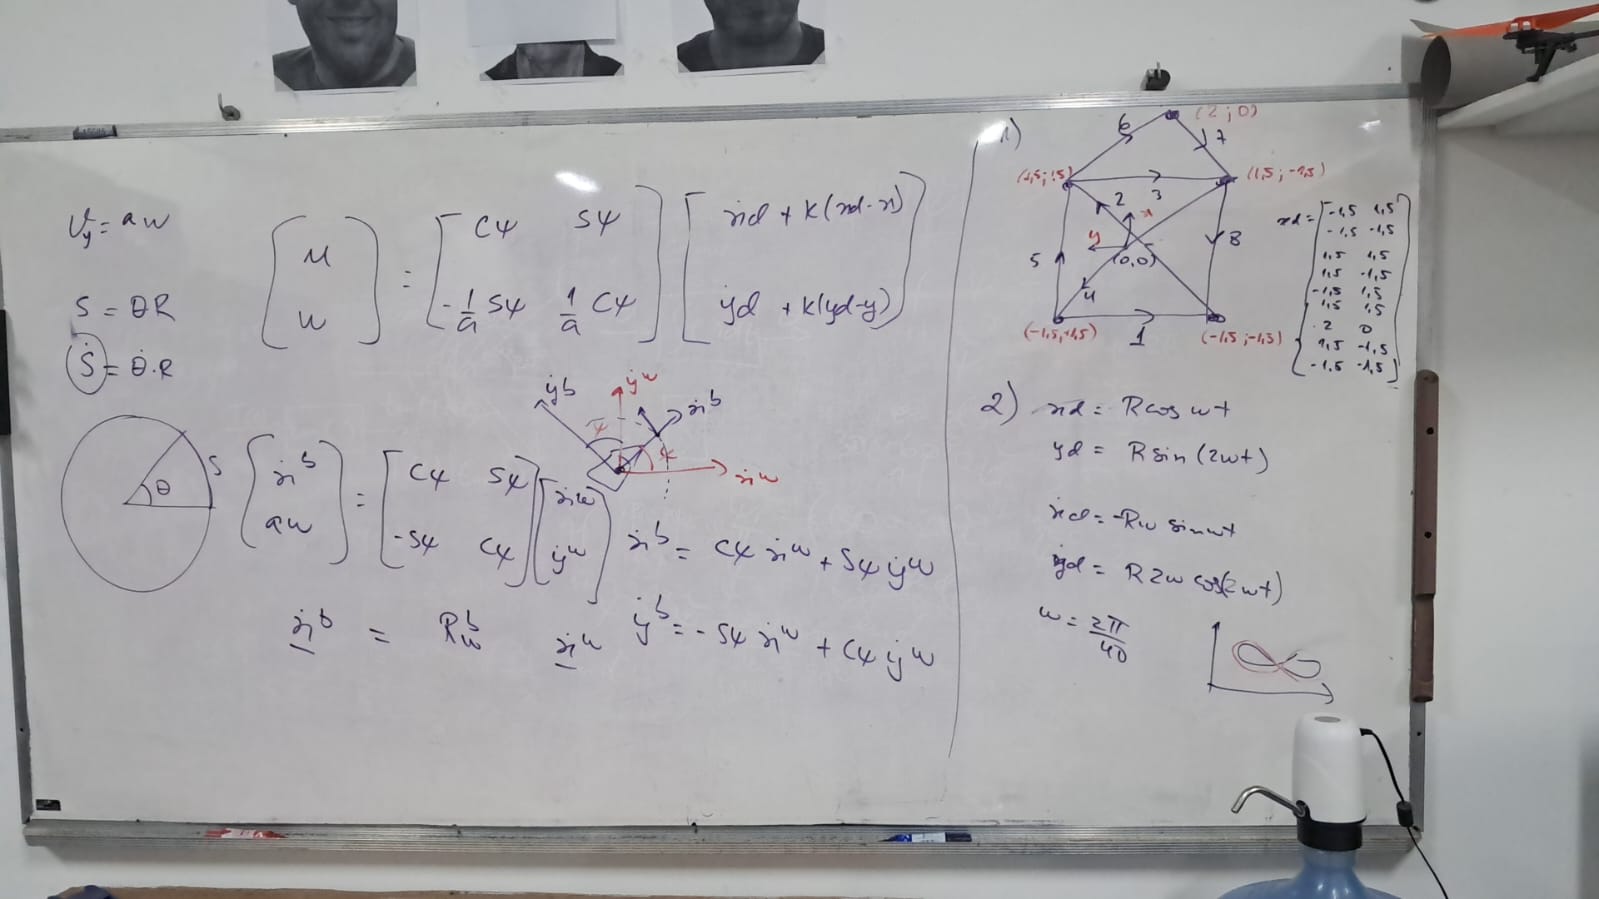 V_y = aω
S = θR
Ṡ = θ̇.R
[u; w] = [Cψ Sψ; -1/a Sψ 1/a Cψ] [ẋd + K(xd-x); ẏd + K(yd-y)]
ẏᵇ ẏʷ ẋᵇ ẋʷ ψ ψ
θ S
[ẋᵇ; aω] = [Cψ Sψ; -Sψ Cψ] [ẋʷ; ẏʷ]
ẋᵇ = Cψ ẋʷ + Sψ ẏʷ
ẏᵇ = -Sψ ẋʷ + Cψ ẏʷ
ẋᵇ = R_wᵇ ẋʷ
1)
(2;0)
6 7
(1,5;1,5) (1,5;-1,5)
2 3
x
y
5 (0,0) 8
4
(-1,5;1,5) 1 (-1,5;-1,5)
xd = [-1,5 1,5
-1,5 -1,5
1,5 1,5
1,5 -1,5
-1,5 1,5
1,5 1,5
2 0
1,5 -1,5
-1,5 -1,5]
2) xd = R cos wt
yd = R sin (2wt)
ẋd = -Rw sin wt
ẏd = R 2w cos(2wt)
w = 2π/40